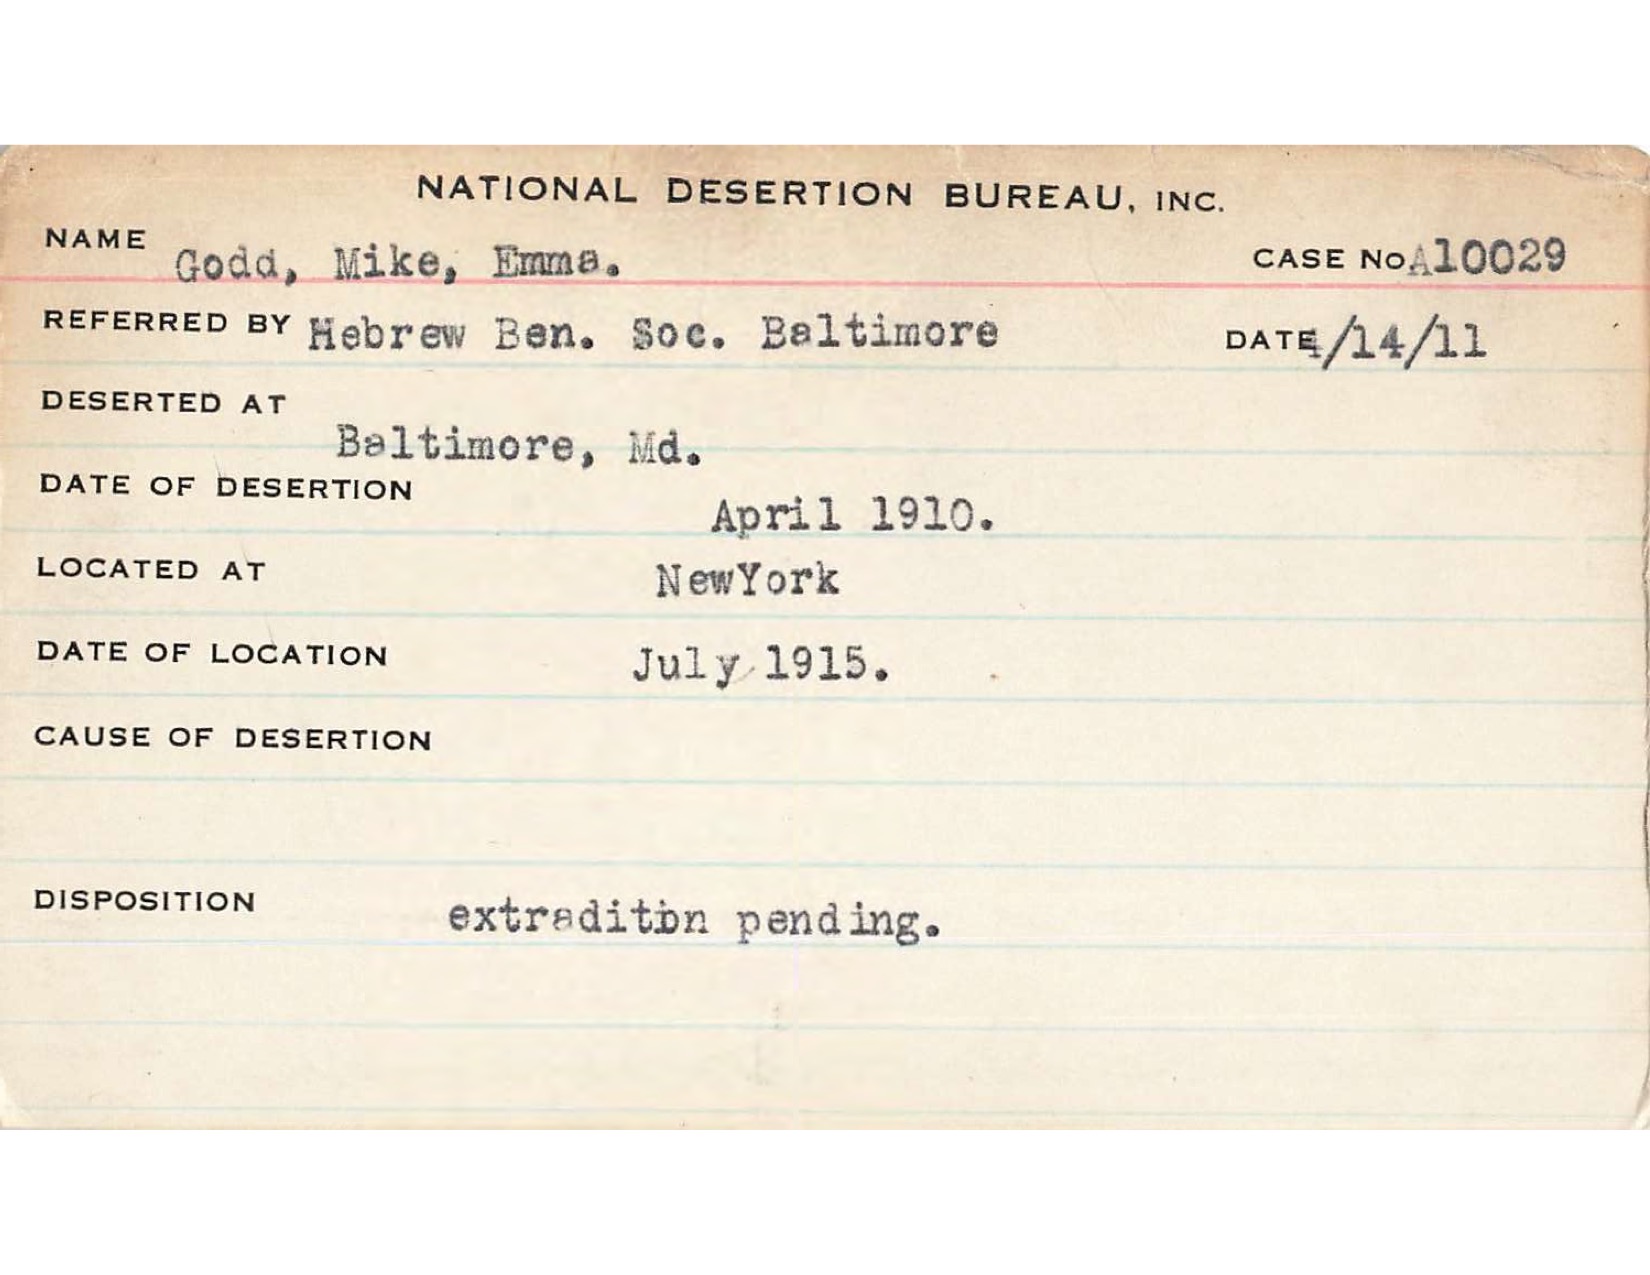 NATIONAL DESERTION BUREAU, INC.
NAME Godd, Mike, Emma. CASE No A10029
REFERRED BY Hebrew Ben. Soc. Baltimore DATE 4/14/11
DESERTED AT
Baltimore, Md.
DATE OF DESERTION
April 1910.
LOCATED AT NewYork
DATE OF LOCATION July 1915.
CAUSE OF DESERTION
DISPOSITION extraditin pending.